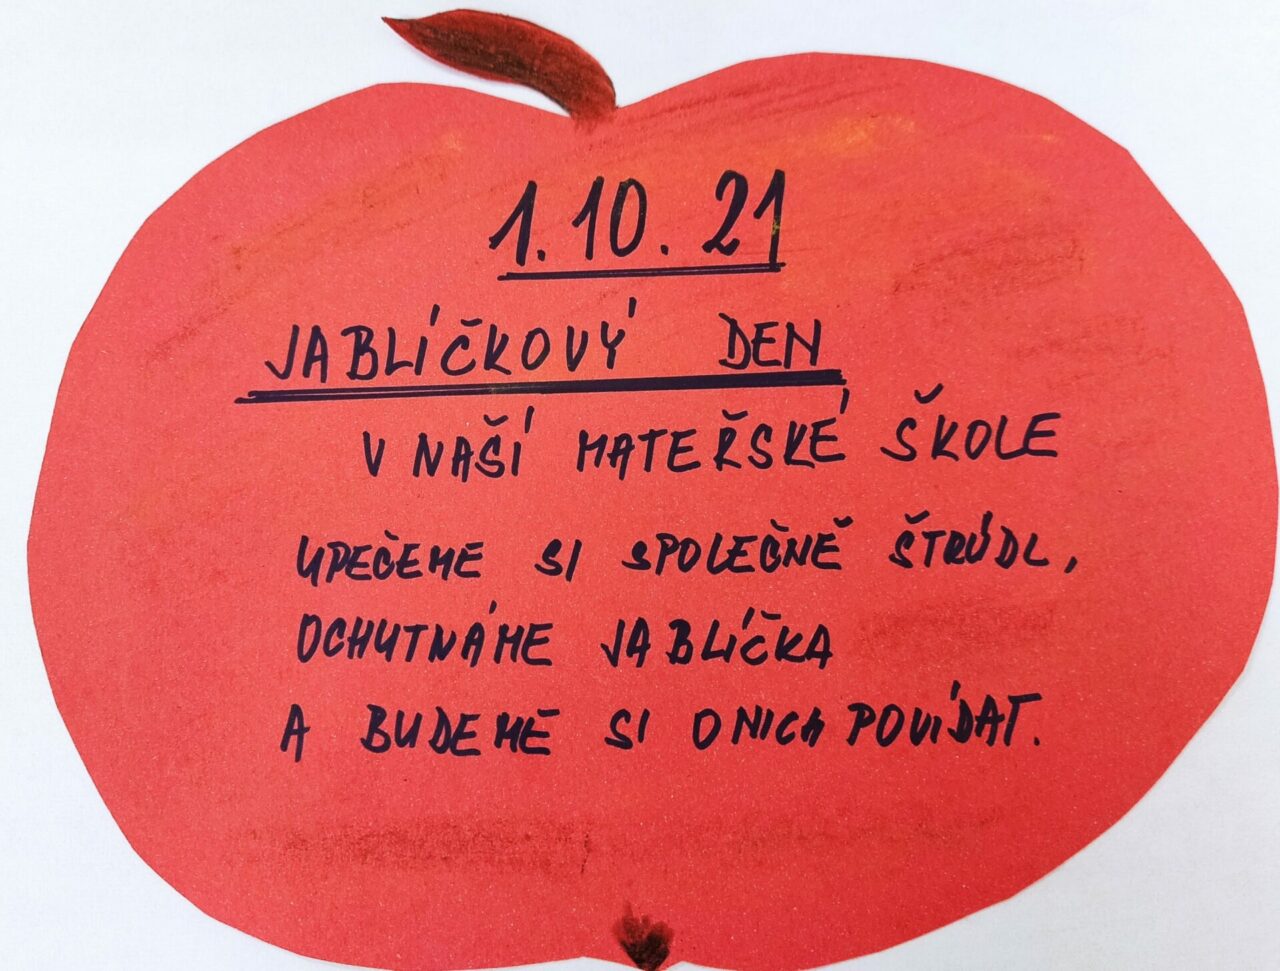 1.10.21
JABLÍČKOVÝ DEN
V NAŠÍ MATEŘSKÉ ŠKOLE
UPEČEME SI SPOLEČNĚ ŠTRÚDL,
OCHUTNÁME JABLÍČKA
A BUDEME SI O NICH POVÍDAT.